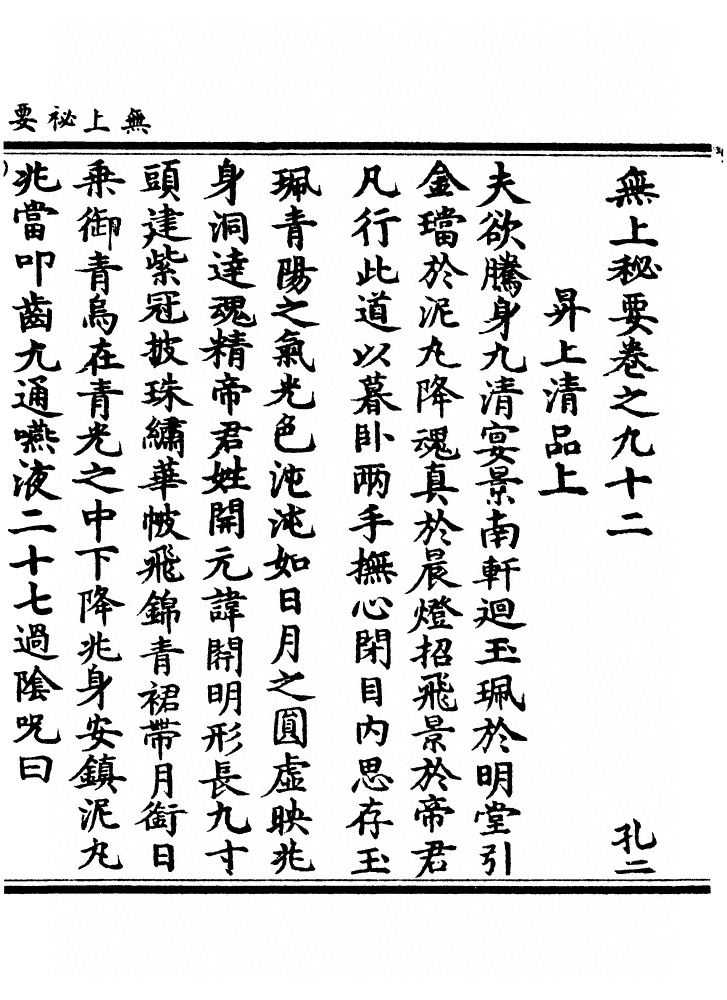 無上祕要
無上秘要卷之九十二 孔二
昇上清品上
夫欲騰身九清宴景南軒迴玉珮於明堂引
金璫於泥丸降魂真於晨燈招飛景於帝君
凡行此道以暮卧兩手撫心閉目內思存玉
珮青陽之氣光色沌沌如日月之圓虛映兆
身洞達魂精帝君姓開元諱開明形長九寸
頭建紫冠披珠繡華帔飛錦青裙帶月銜日
乘御青烏在青光之中下降兆身安鎮泥丸
兆當叩齒九通嚥液二十七過陰呪曰